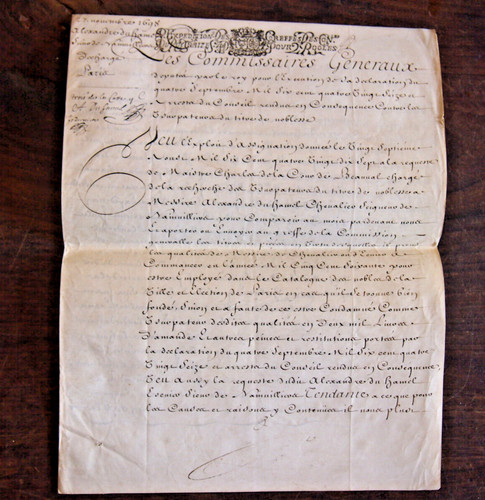 2 novembre 1698
Alexandre du hamel
Sieur de
Descharge
Paris
EXPEDITION DES GREFFES DES CON.
Les Commissaires Generaux
deputez par le roy pour l'Execution de sa declaration du
quatre Septembre Mil Six Cent quatre Vingt Seize et
arrests du Conseil rendus en Consequence Contre les
Usurpateurs du titre de noblesse
Veu l'Exploit d'assignation donnée le Vingt Septieme
Mil Six Cent quatre Vingt dix Sept a la requeste
de Maistre Charles de la Cour de Beauval chargé
de la recherche des Usurpateurs du titre de noblesse a
Messire Alexandre du hamel Chevalier Seigneur de
pour Comparoir au mois pardevant nous
raporter ou Envoyer au greffe de la Commission
generalle les titres et pieces en Vertu desquelles il prend
les qualitez de Messire de Chevalier ou d'Ecuier a
Commancer en l'année Mil Cinq Cent Soixante pour
estre Employé dans le Catalogue des nobles de la
Ville et Election de Paris en cas qu'il se trouve bien
fondé, Sinon et a faute de ce estre Condamné Comme
Usurpateur desdites qualitez en Deux mil Livres
d'amande Et autres peines et restitutions portées par
la declaration du quatre Septembre Mil Six cent quatre
Vingt Seize et arrests du Conseil rendus en Consequence
Veu aussy la requeste dudit Alexandre du hamel
Escuier Sieur de Tendante a ce que pour
les Causes et raisons y Contenues il nous plust